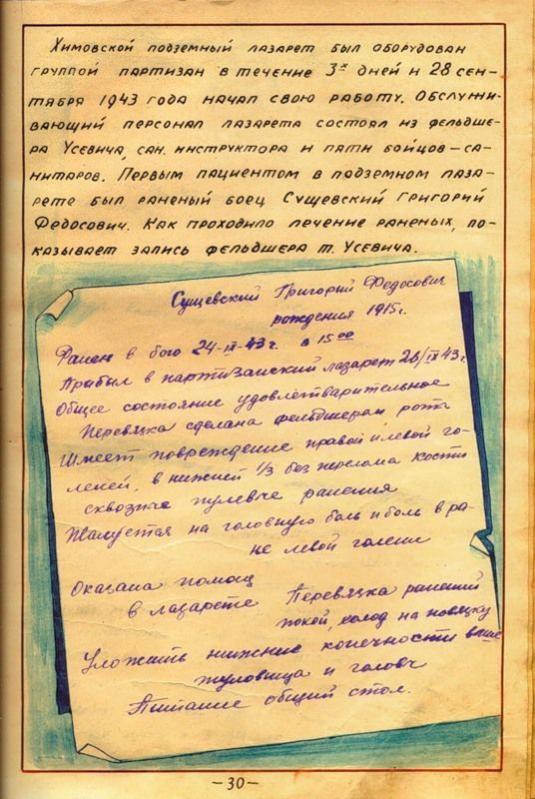 Химовской подземный лазарет был оборудован
группой партизан в течение 3х дней и 28 сен-
тября 1943 года начал свою работу. Обслужи-
вающий персонал лазарета состоял из фельдше-
ра Усевича, сан. инструктора и пяти бойцов-са-
нитаров. Первым пациентом в подземном лаза-
рете был раненый боец Сущевский Григорий
Федосович. Как проходило лечение раненых, по-
казывает запись фельдшера т. Усевича.
Сущевский Григорий Федосович
рождения 1915г.
Ранен в бою 24-IX-43г. в 15 00
Прибыл в партизанский лазарет 26/IX 43г.
Общее состояние удовлетварительное
Перевязка сделана фельдшером роты
Имеет повреждение правой и левой го-
леней, в нижней 1/3 без перелома кости
сквозные пулевые ранения
Жалуется на головную боль и боль в ра-
не левой голени
Оказана помощ
в лазарете Перевязка ранений
покой, холод на повязку
Уложить нижние конечности выше
туловища и головы
Питание общий стол.
-30-